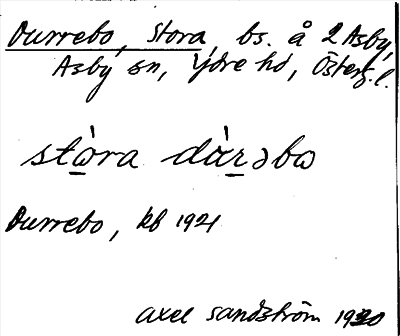 Durrebo, Stora, bs. å 2 Asby,
Asby sn, Ydre hd, Österg. l.
stὼ̱ra dὰṟəbω
Durrebo, kb 1921
Axel Sandström 1930